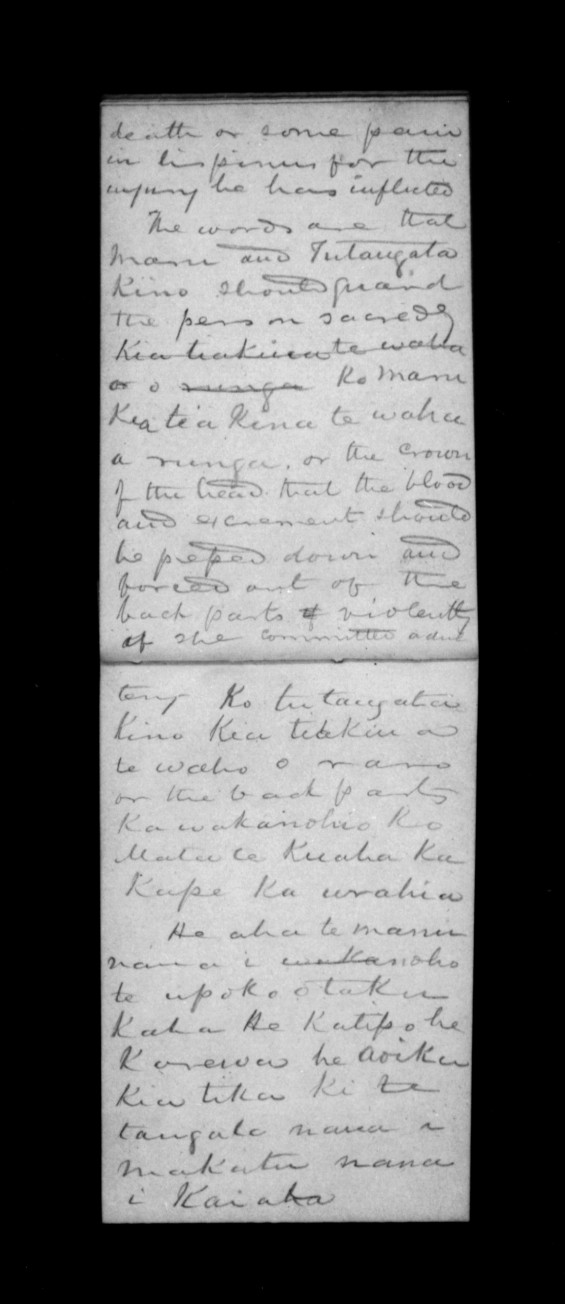 death or some pain
in his penis for the
injury he has inflicted
The words are that
Maru and Tutangata
Kino should guard
the person sacredly
Kia tiakina te waha
o runga Ko Maru
Kia tiakina te waha
a runga. or the crown
of the head that the blood
and excrement should
be peped down and
forced out of the
back parts violently
if she committed adul
tery Ko tutangata
kino Kia tiakina
te waho o raro
or the back parts
Ka wakanohio Ko
Matate Kuaha Ka
Kape Ka urahia
He aha te manu
nana i wakanoho
te upoko o taku
Kaha He Katipo he
Karewa he aoika
Kia tika ki te
tangata nana i
makatu nana
i Kaiaha